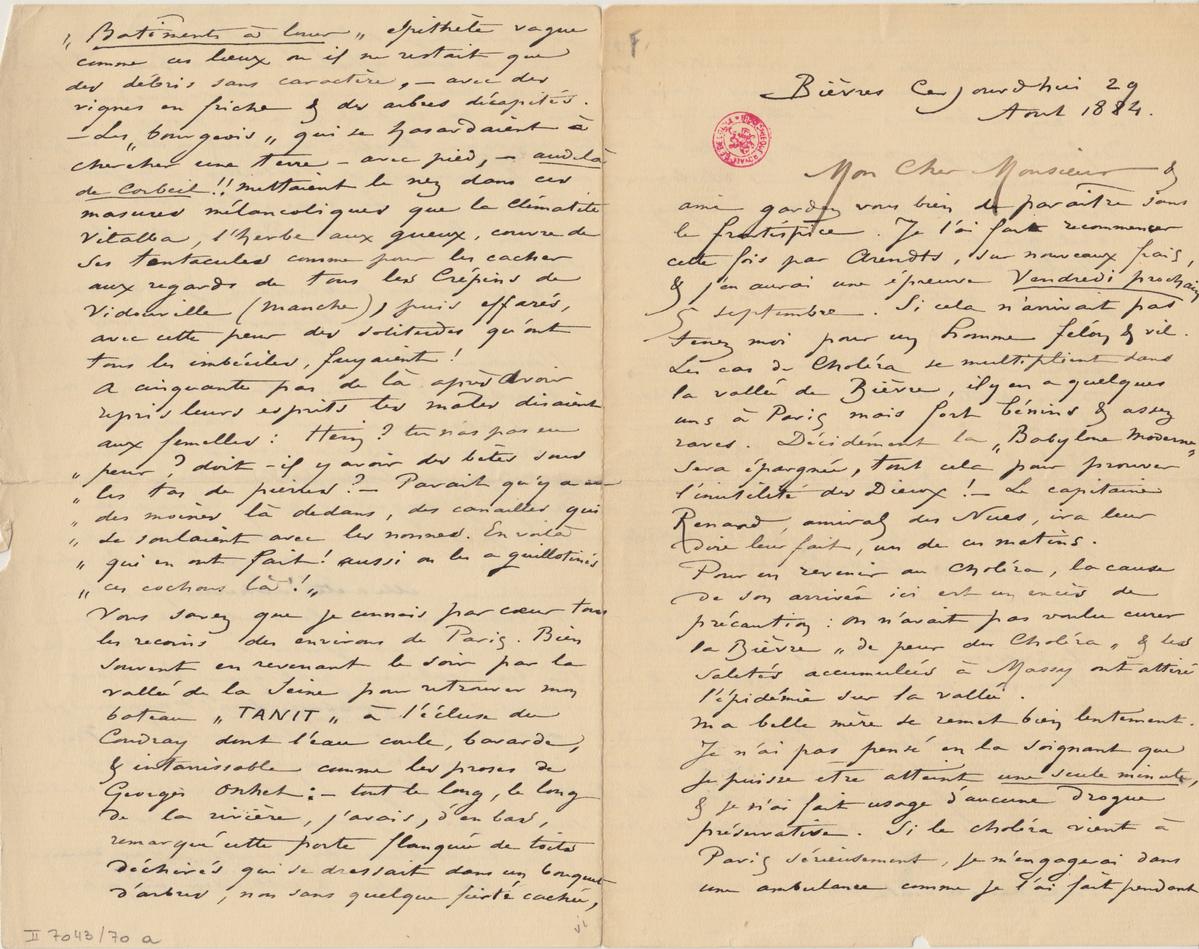 „ Batiments à louer „ épithète vague
comme ces lieux ou il ne restait que
des débris sans caractère, – avec des
vignes en friche & des arbres décapités.
– Les „ bourgeois „ qui se hasardaient à
chercher une terre – avec pied, – au delà
de Corbeil !! mettaient le nez dans ces
masures mélancoliques que la Clématite
Vitalba, l'herbe aux gueux, couvre de
ses tentacules comme pour les cacher
aux regards de tous les Crépins de
Vidouville (Manche), puis effarés,
avec cette peur des solitudes qu'ont
tous les imbéciles, fuyaient !
A cinquante pas de là après avoir
repris leurs esprits les mâles disaient
aux femelles : Hein ? tu n'as pas eu
„ peur ? doit-il y avoir des bêtes sous
„ les tas de pierres ? – Parait qu'y a eu
„ des moines là dedans, des canailles qui
„ se soulaient avec les nonnes. En voilà
„ qui en ont fait ! aussi on les a guillotinés
„ ces cochons là ! „
Vous savez que je connais par cœur tous
les recoins des environs de Paris. Bien
souvent en revenant le soir par la
vallée de la Seine pour retrouver mon
bateau „ TANIT „ à l'écluse du
Coudray dont l'eau coule, bavarde,
& intarissable comme les proses de
Georges Ohnet : – tout le long, le long
de la rivière, j'avais, d'en bas,
remarqué cette porte flanquée de toits
déchirés qui se dressait dans un bouquet
d'arbres, non sans quelque fierté cachée,
II 7043/70 a
Bièvres Ce jourd'hui 29
Aout 1884.
Mon Cher Monsieur &
ami gardez vous bien de paraître sans
le frontispice. Je l'ai fait recommencer
cette fois par Arendts, sur nouveaux frais,
& j'en aurai une épreuve Vendredi prochain
5 septembre. Si cela n'arrivait pas
tenez moi pour un homme felon & vil.
Les cas de Choléra se multiplient dans
la vallée de Bièvre, il y en a quelques
uns à Paris mais fort bénins & assez
rares. Décidément la „Babylone Moderne„
sera épargnée, tout cela pour prouver
l'inutilité des Dieux ! – Le capitaine
Renard, amiral des Nues, ira leur
dire leur fait, un de ces matins.
Pour en revenir au choléra, la cause
de son arrivée ici est un excès de
précaution : on n'avait pas voulu curer
la Bièvre „ de peur du Choléra „ & les
saletés accumulées à Massy ont attiré
l'épidémie sur la vallée.
Ma belle mère se remet bien lentement.
Je n'ai pas pensé en la soignant que
je puisse etre atteint une seule minute,
& je n'ai fait usage d'aucune drogue
préservative. Si le choléra vient à
Paris sérieusement, je m'engagerai dans
une ambulance comme je l'ai fait pendant